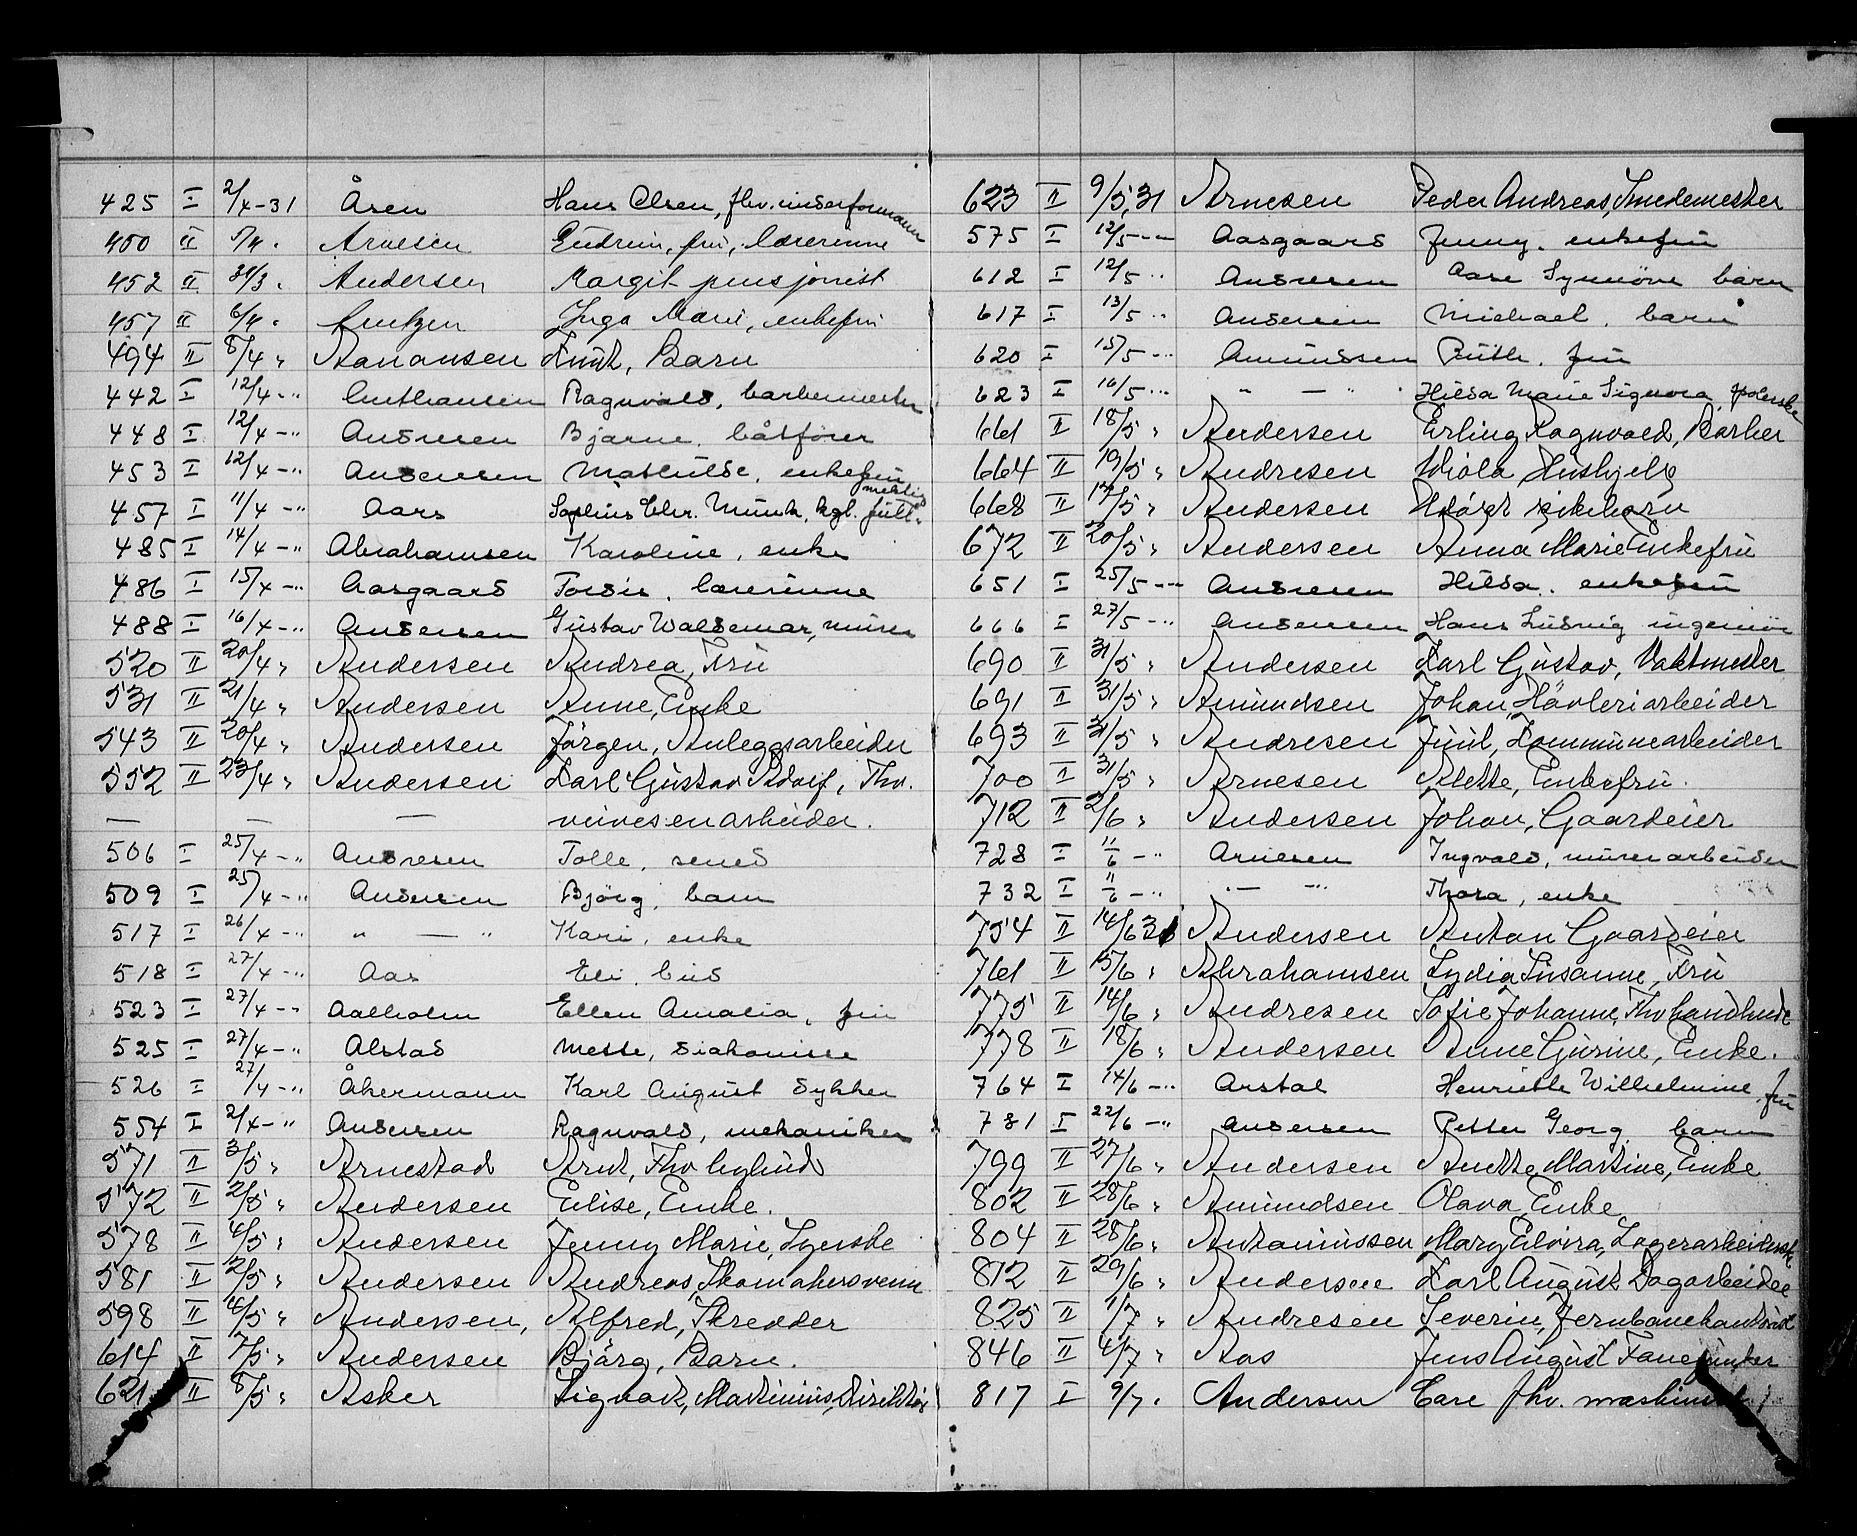 425 I 2/4-31 Åsen Hans Olsen, fhv. underformann
450 II 5/4 " Arnesen Gudrun, fru, lærerinne
452 II 31/3 " Andersen Margit pensjonist
457 II 6/4 " Arntzen Inga Marie, enkefru
494 II 8/4 " Aanonsen Knut, Barn
442 I 12/4 -"- Ragnvald, barbermester
448 I 12/4 -"- Andresen Bjarne, båtfører
453 I 12/4 -"- Andersen Mathilde, enkefru
457 I 11/4 -"- Aars Sophus Chr. Munk, kgl. fullmektig
485 I 14/4 -"- Abrahamsen Karoline, enke
486 I 15/4 -"- Aasgaard Tordis, lærerinne
488 I 16/4 -"- Andersen Gustav Waldemar, murer
520 II 20/4 " Andersen Andrea, Fru
531 II 21/4 " Andersen Anne, Enke
543 II 20/4 " Andersen Jörgen, Anleggsarbeider
552 II 23/4 " Andersen Karl Gustav Adolf, Fhv.
— — — veivesenarbeider.
506 I 25/4 -"- Andresen Tolle,
509 I 25/4 -"- Andersen Björg, barn
517 I 26/4 -"- " — " Kari, enke
518 I 27/4 -"- Aas
523 I 27/4 -"- Aalholm Ellen Amalia, fru
525 I 27/4 -"- Alstad Mette, diakonisse
526 I 27/4 -"- Åkermann Karl August dykker
554 I 2/4 -"- Andersen Ragnvald, mekaniker
571 II 3/5 " Arnestad Arnt, Fhv
572 II 2/5 " Andersen Elise, Enke.
578 II 4/5 " Andersen Jenny Marie, Syerske
581 II 2/5 " Andersen Andreas, Skomakersvenn
598 II 4/5 " Andersen, Alfred, Skredder
614 II 7/5 " Andersen Bjärg, Barn.
621 II 8/5 " Asker Sigvart, Martinius, Direktør
623 II 9/5,31 Arnesen Peder Andreas, Smedemester
575 I 12/5 -"- Aasgaard Jenny, enkefru
612 I 12/5 -"- Andresen Aase Synnöve barn
617 I 13/5 -"- Andersen Michael, barn
620 I 15/5 -"- Amundsen Ruth, fru
623 I 16/5 -"- " — " Hilda Marie Signora,
661 II 18/5 " Andersen Erling Ragnvald, Barber
664 II 19/5 " Andresen Viola Hushjelp
668 II 17/5 " Andersen pikebarn
672 II 20/5 " Andersen Anna Marie Enkefru
651 I 25/5 -"- Andresen Hilda, enkefru
666 I 27/5 -"- Andersen Hans Ludvig ingeniör
690 II 31/5 " Andersen Karl Gustav, Vaktmester
691 II 31/5 " Amundsen Johan, Hövleriarbeider
693 II 31/5 " Andresen Juul, Kommunearbeider
700 II 31/5 " Arnesen Alette, Enkefru.
712 II 2/6 " Andersen Johan, Gaardeier
728 I 11/6 -"- Arnesen Ingvald, murerarbeider
732 I 11/6 -"- " — " Thora, enke
754 II 14/6 31 Andersen Anton Gaardeier
761 II 15/6 " Abrahamsen Lydia Susanne, Fru
775 II 14/6 " Andresen Sofie Johanne, Fhv handlende
778 II 18/6 " Andersen Anne Gurine, Enke.
764 I 14/6 -"- Arstal Henriette Wilhelmine, fru
781 I 22/6 -"- Andersen Petter Georg, barn
799 II 27/6 " Andersen Anette Martine, Enke
802 II 28/6 " Amundsen Olava, Enke
804 II 28/6 " Antoniussen Mary Elvira, Lagerarbeiderske
812 II 29/6 " Andersen Karl August Dagarbeider
825 II 1/7 " Andresen Severin, Jernbanekontorist
846 II 4/7 " Aas Jens August Fanejunker
817 I 9/7 " Andersen Carl fhv. maskinist